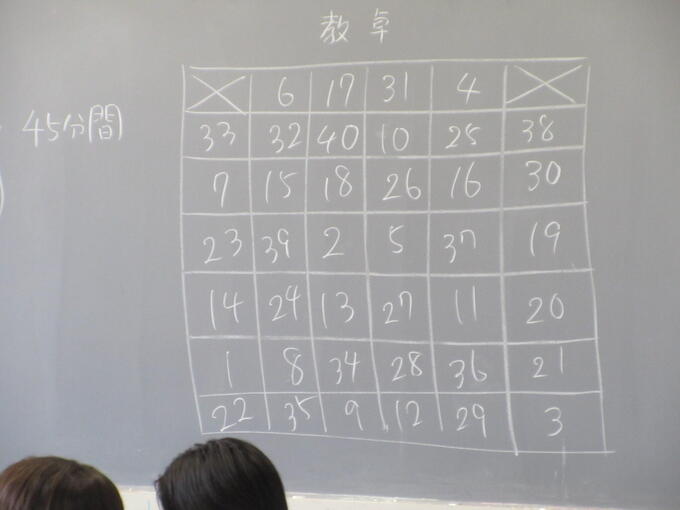 教卓
45分間
6 17 31 4
33 32 40 10 25 38
7 15 18 26 16 30
23 39 2 5 37 19
14 24 13 27 11 20
1 8 34 28 36 21
22 35 9 12 29 3